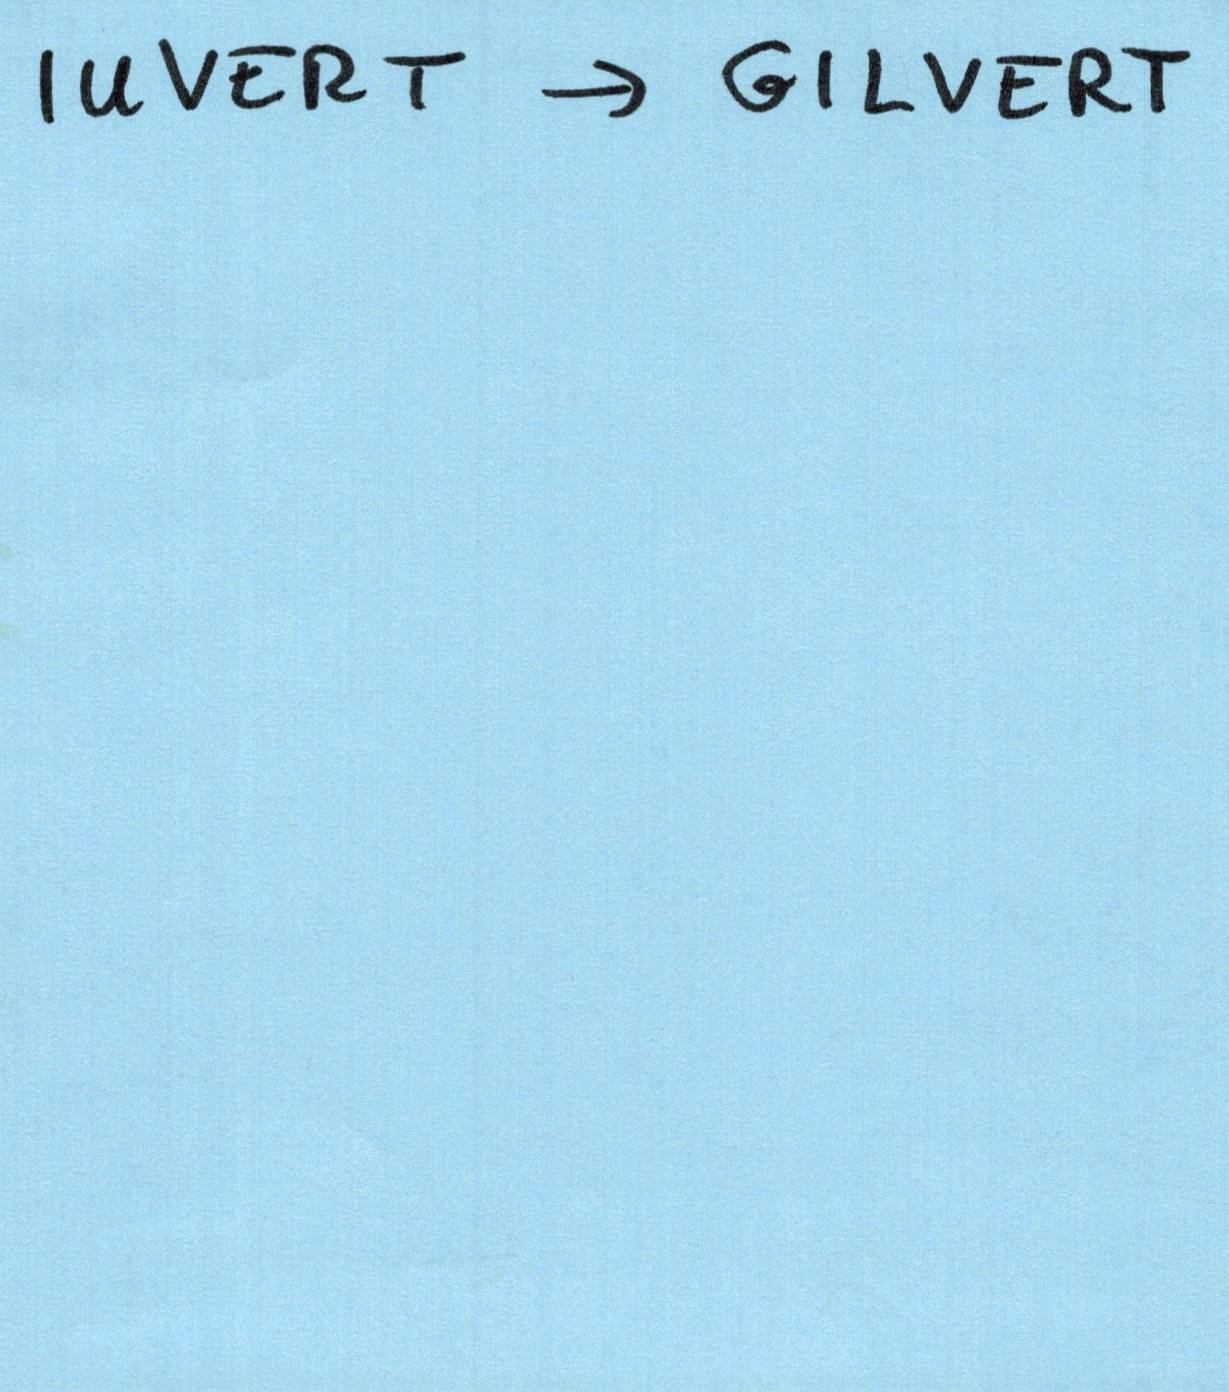 IUVERT → GILVERT